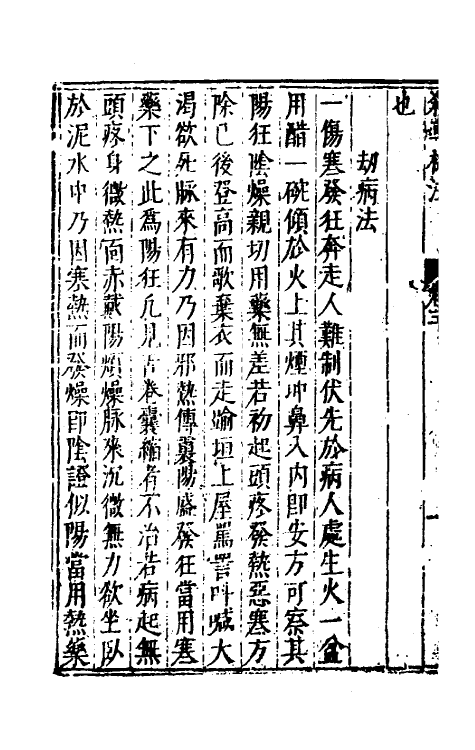 也
劫病法
一傷寒發狂奔走人難制伏先於病人處生火一盆
用醋一碗傾於火上其煙冲鼻入内即安方可察其
陽狂陰燥親切用藥無差若初起頭疼發熱惡寒方
除已後登高而歌棄衣而走踰垣上屋罵詈叫喊大
渴欲死脉來有力乃因邪熱傳裏陽盛發狂當用寒
藥下之此爲陽狂凡見舌卷囊縮者不治若病起無
頭疼身微熱面赤戴陽煩燥脉來沉微無力欲坐臥
於泥水中乃因寒熱而發燥即陰證似陽當用熱藥